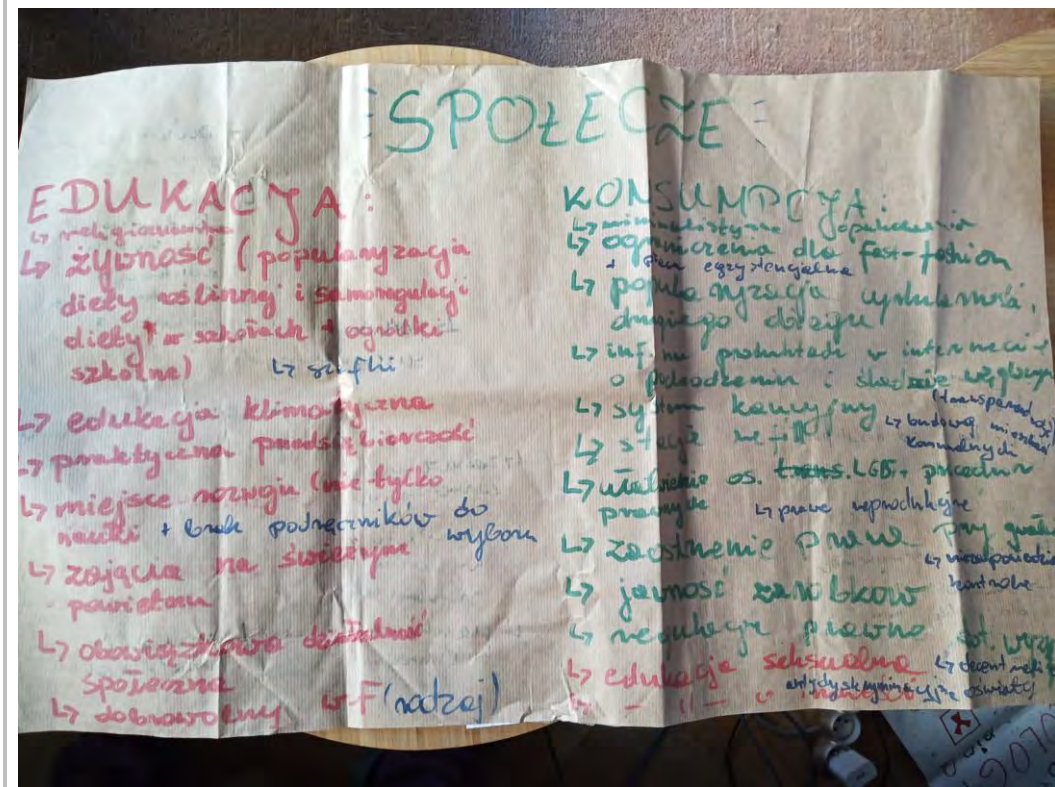 SPOŁECZE
EDUKACJA:
↳ żywność (popularyzacja
diety roślinnej i samoregulacji
diety* w szkołach + ogródki
szkolne)
↳ edukacja klimatyczna
↳ praktyczna przedsiębiorczość
↳ miejsce rozwoju (nie tylko
nauki + brak podręczników do
wyboru
↳ zajęcia na świeżym
powietrzu
↳ obowiązkowa działalność
społeczna
↳ dobrowolny w-F (rodzaj)
KONSUMPCJA:
↳ ograniczenia dla fast-fashion
↳ popularyzacja
drugiego obiegu
↳ inf. na produktach w internecie
o pochodzeniu i śladzie węglowym
↳ system kaucyjny
↳ budowa mieszkań
komunalnych
↳ stacje refill
↳ ułatwienie os. trans. LGBT+ procedur
prawnych
↳ prawa reprodukcyjne
↳ zaostrzenie prawa przy
↳ jawność zarobków
↳ regulacje prawne
↳ edukacja seksualna
↳ - || -
antydyskryminacyjne oświaty